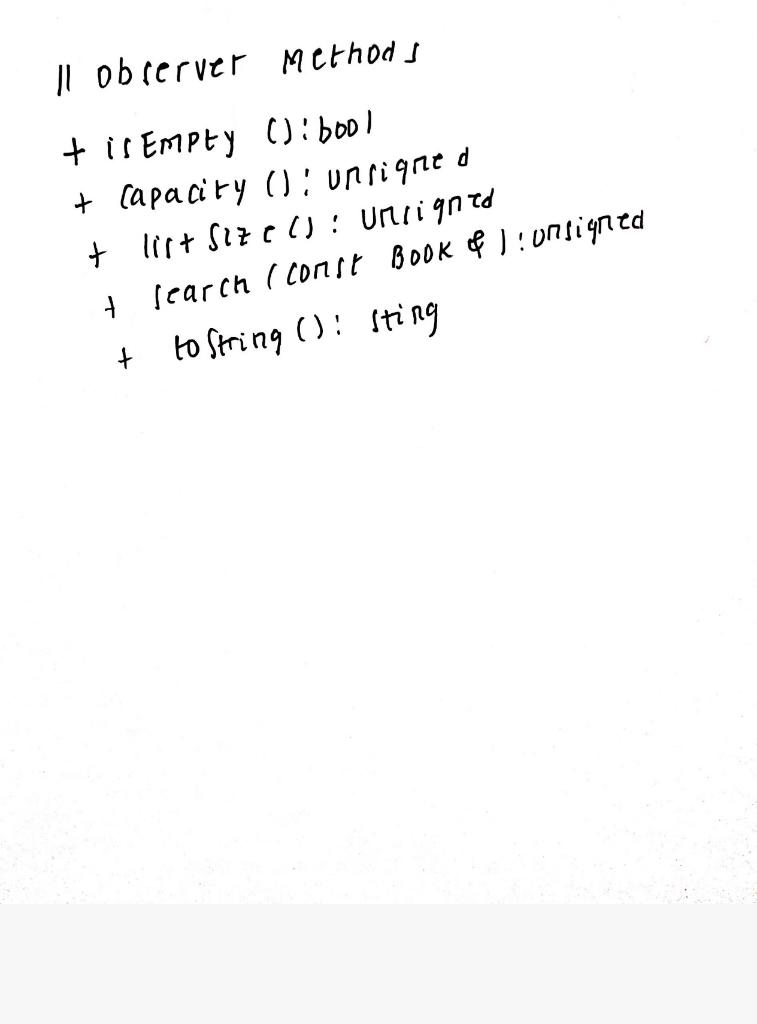 // observer methods
+ isEmpty (): bool
+ capacity (): unsigned
+ listSize(): unsigned
+ search (const Book &): unsigned
+ toString (): sting